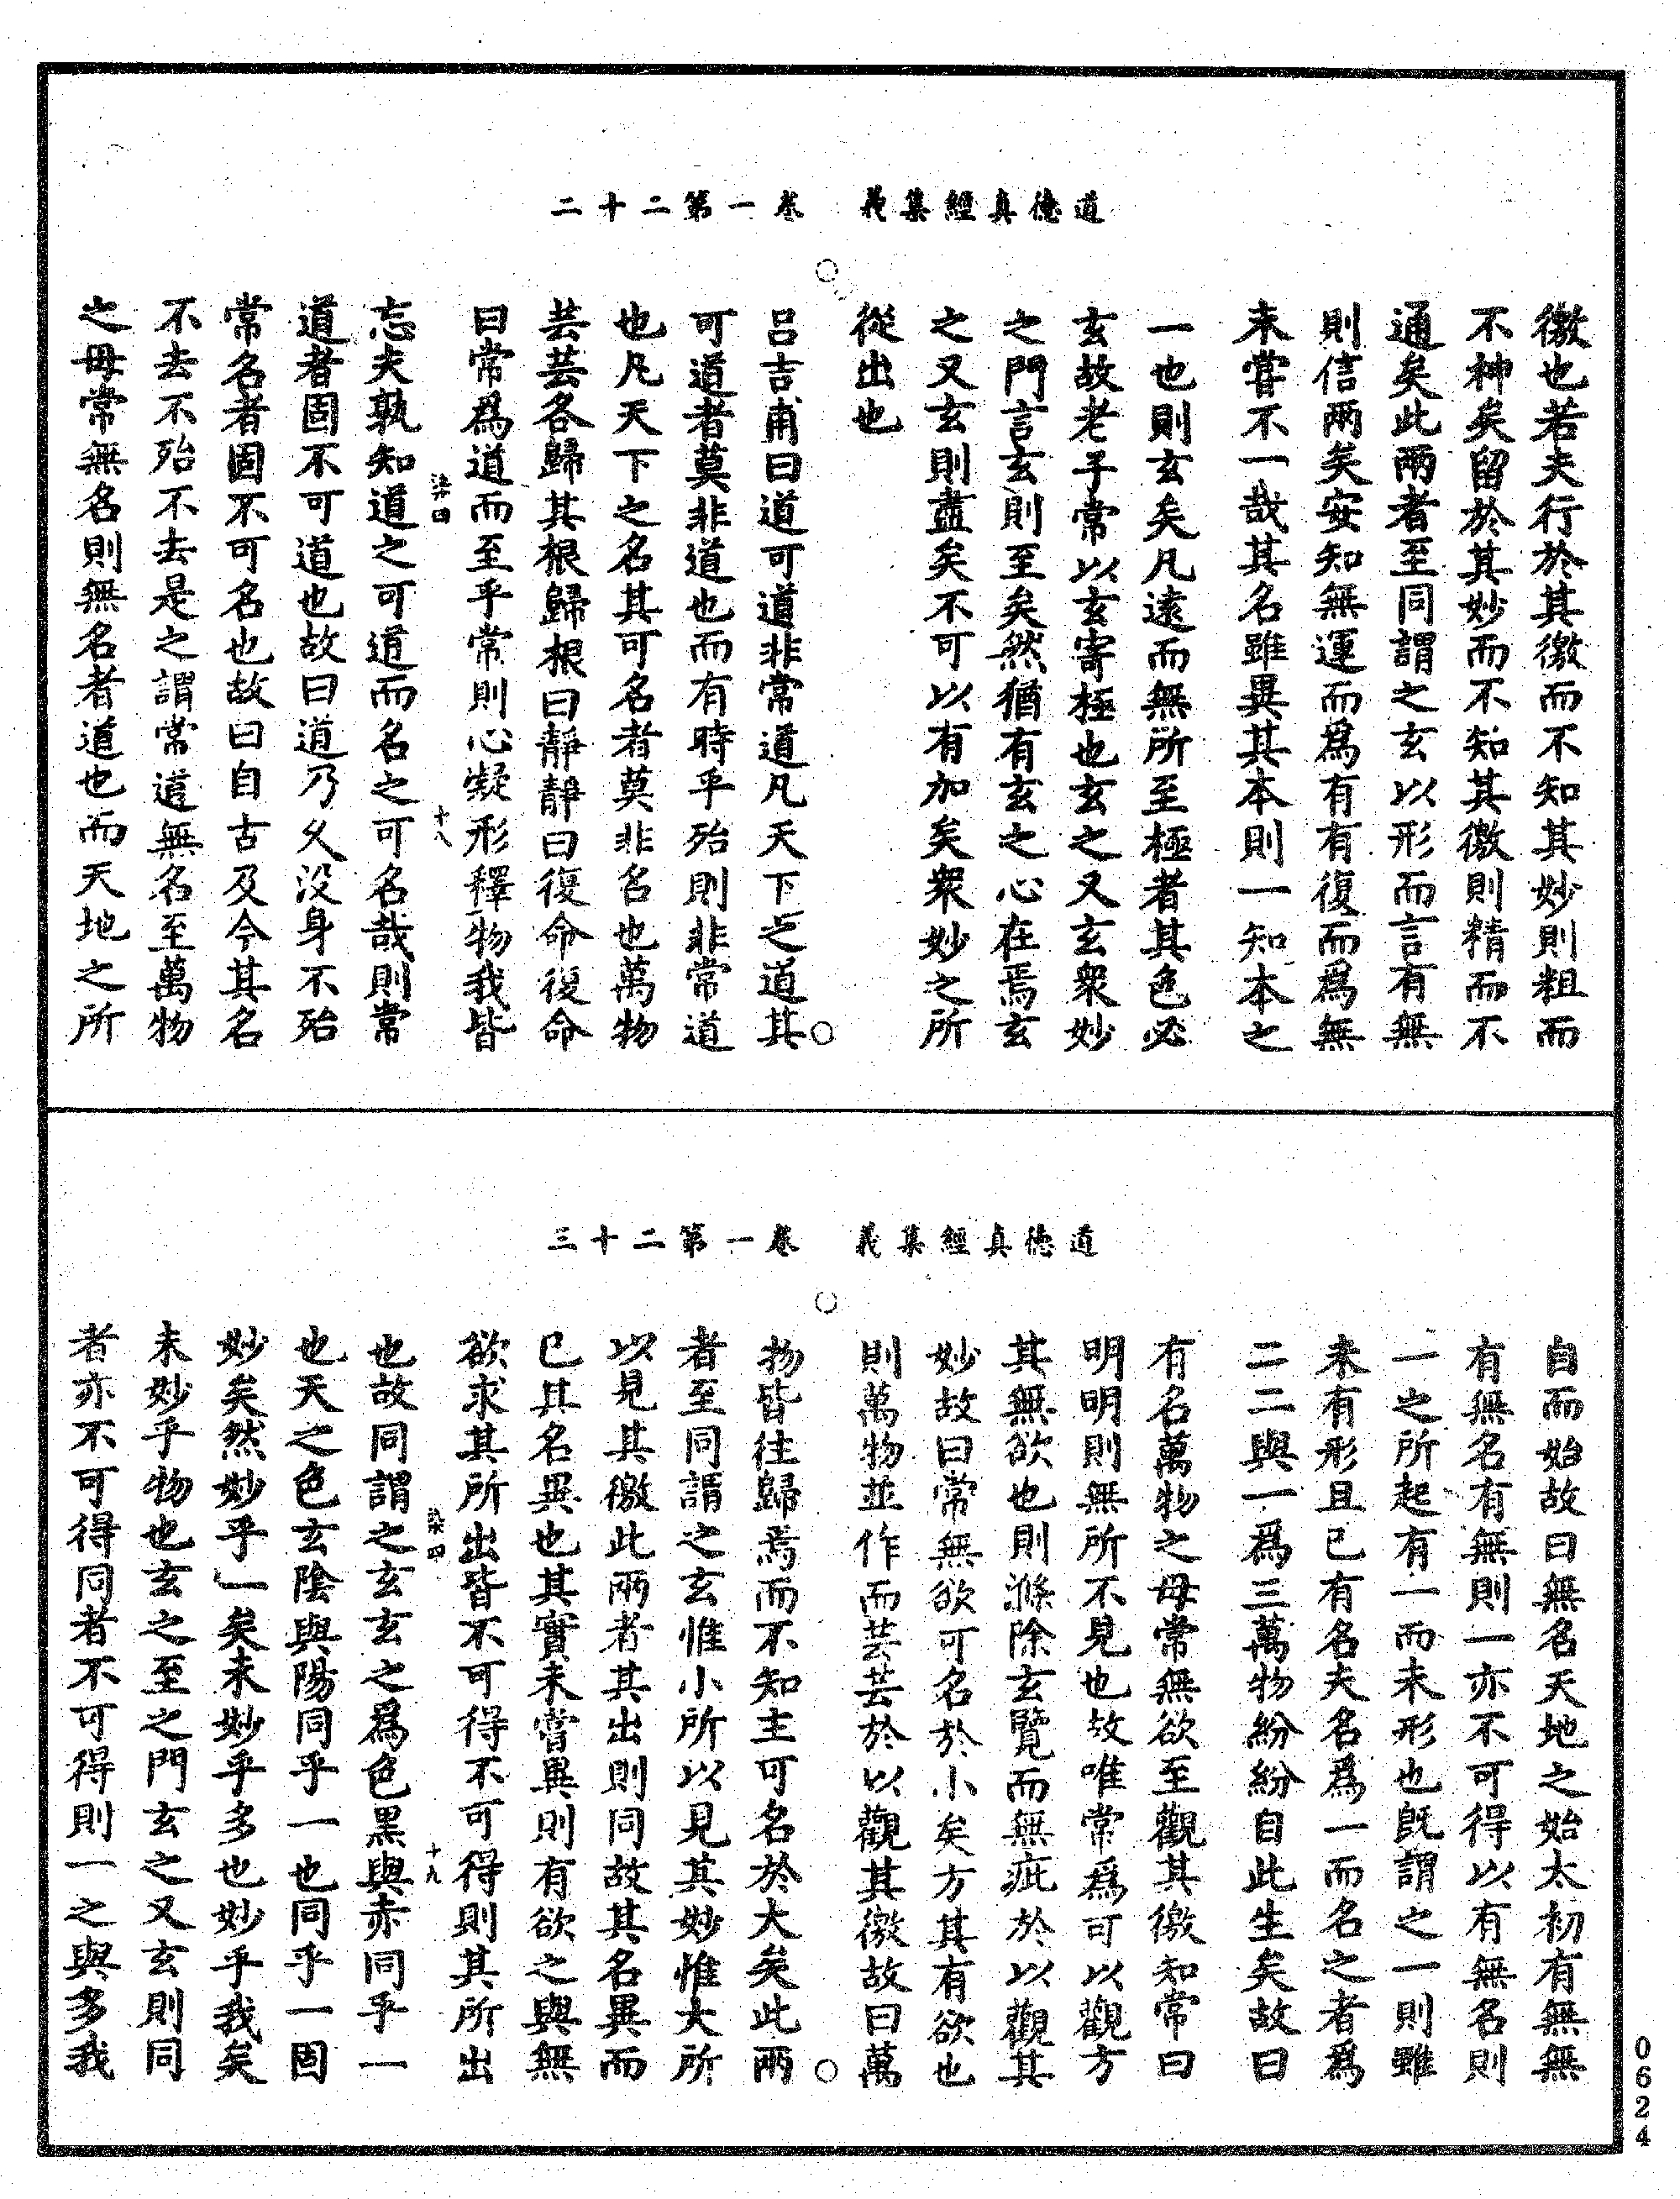 道德真經集義　卷一第二十二
徼也若夫行於其徼而不知其妙則粗而
不神矣留於其妙而不知其徼則精而不
通矣此兩者至同謂之玄以形而言有無
則信兩矣安知無運而爲有有復而爲無
未嘗不一哉其名雖異其本則一知本之
一也則玄矣凡遠而無所至極者其色必
玄故老子常以玄寄極也玄之又玄衆妙
之門言玄則至矣然猶有玄之心在焉玄
之又玄則盡矣不可以有加矣衆妙之所
從出也
吕吉甫曰道可道非常道凡天下之道其
可道者莫非道也而有時乎殆則非常道
也凡天下之名其可名者莫非名也萬物
芸芸各歸其根歸根曰靜靜曰復命復命
曰常爲道而至乎常則心凝形釋物我皆
染四　十八
忘夫孰知道之可道而名之可名哉則常
道者固不可道也故曰道乃久没身不殆
常名者固不可名也故曰自古及今其名
不去不殆不去是之謂常道無名至萬物
之母常無名則無名者道也而天地之所
道德真經集義　卷一第二十三
自而始故曰無名天地之始太初有無無
有無名有無則一亦不可得以有無名則
一之所起有一而未形也旣謂之一則雖
未有形且已有名夫名爲一而名之者爲
二二與一爲三萬物紛紛自此生矣故曰
有名萬物之母常無欲至觀其徼知常曰
明明則無所不見也故唯常爲可以觀方
其無欲也則滌除玄覽而無疵於以觀其
妙故曰常無欲可名於小矣方其有欲也
則萬物並作而芸芸於以觀其徼故曰萬
物皆往歸焉而不知主可名於大矣此兩
者至同謂之玄惟小所以見其妙惟大所
以見其徼此兩者其出則同故其名異而
已其名異也其實未嘗異則有欲之與無
欲求其所出皆不可得不可得則其所出
染四　十九
也故同謂之玄玄之爲色黑與赤同乎一
也天之色玄陰與陽同乎一也同乎一固
妙矣然妙乎一矣未妙乎多也妙乎我矣
未妙乎物也玄之至之門玄之又玄則同
者亦不可得同者不可得則一之與多我
0624